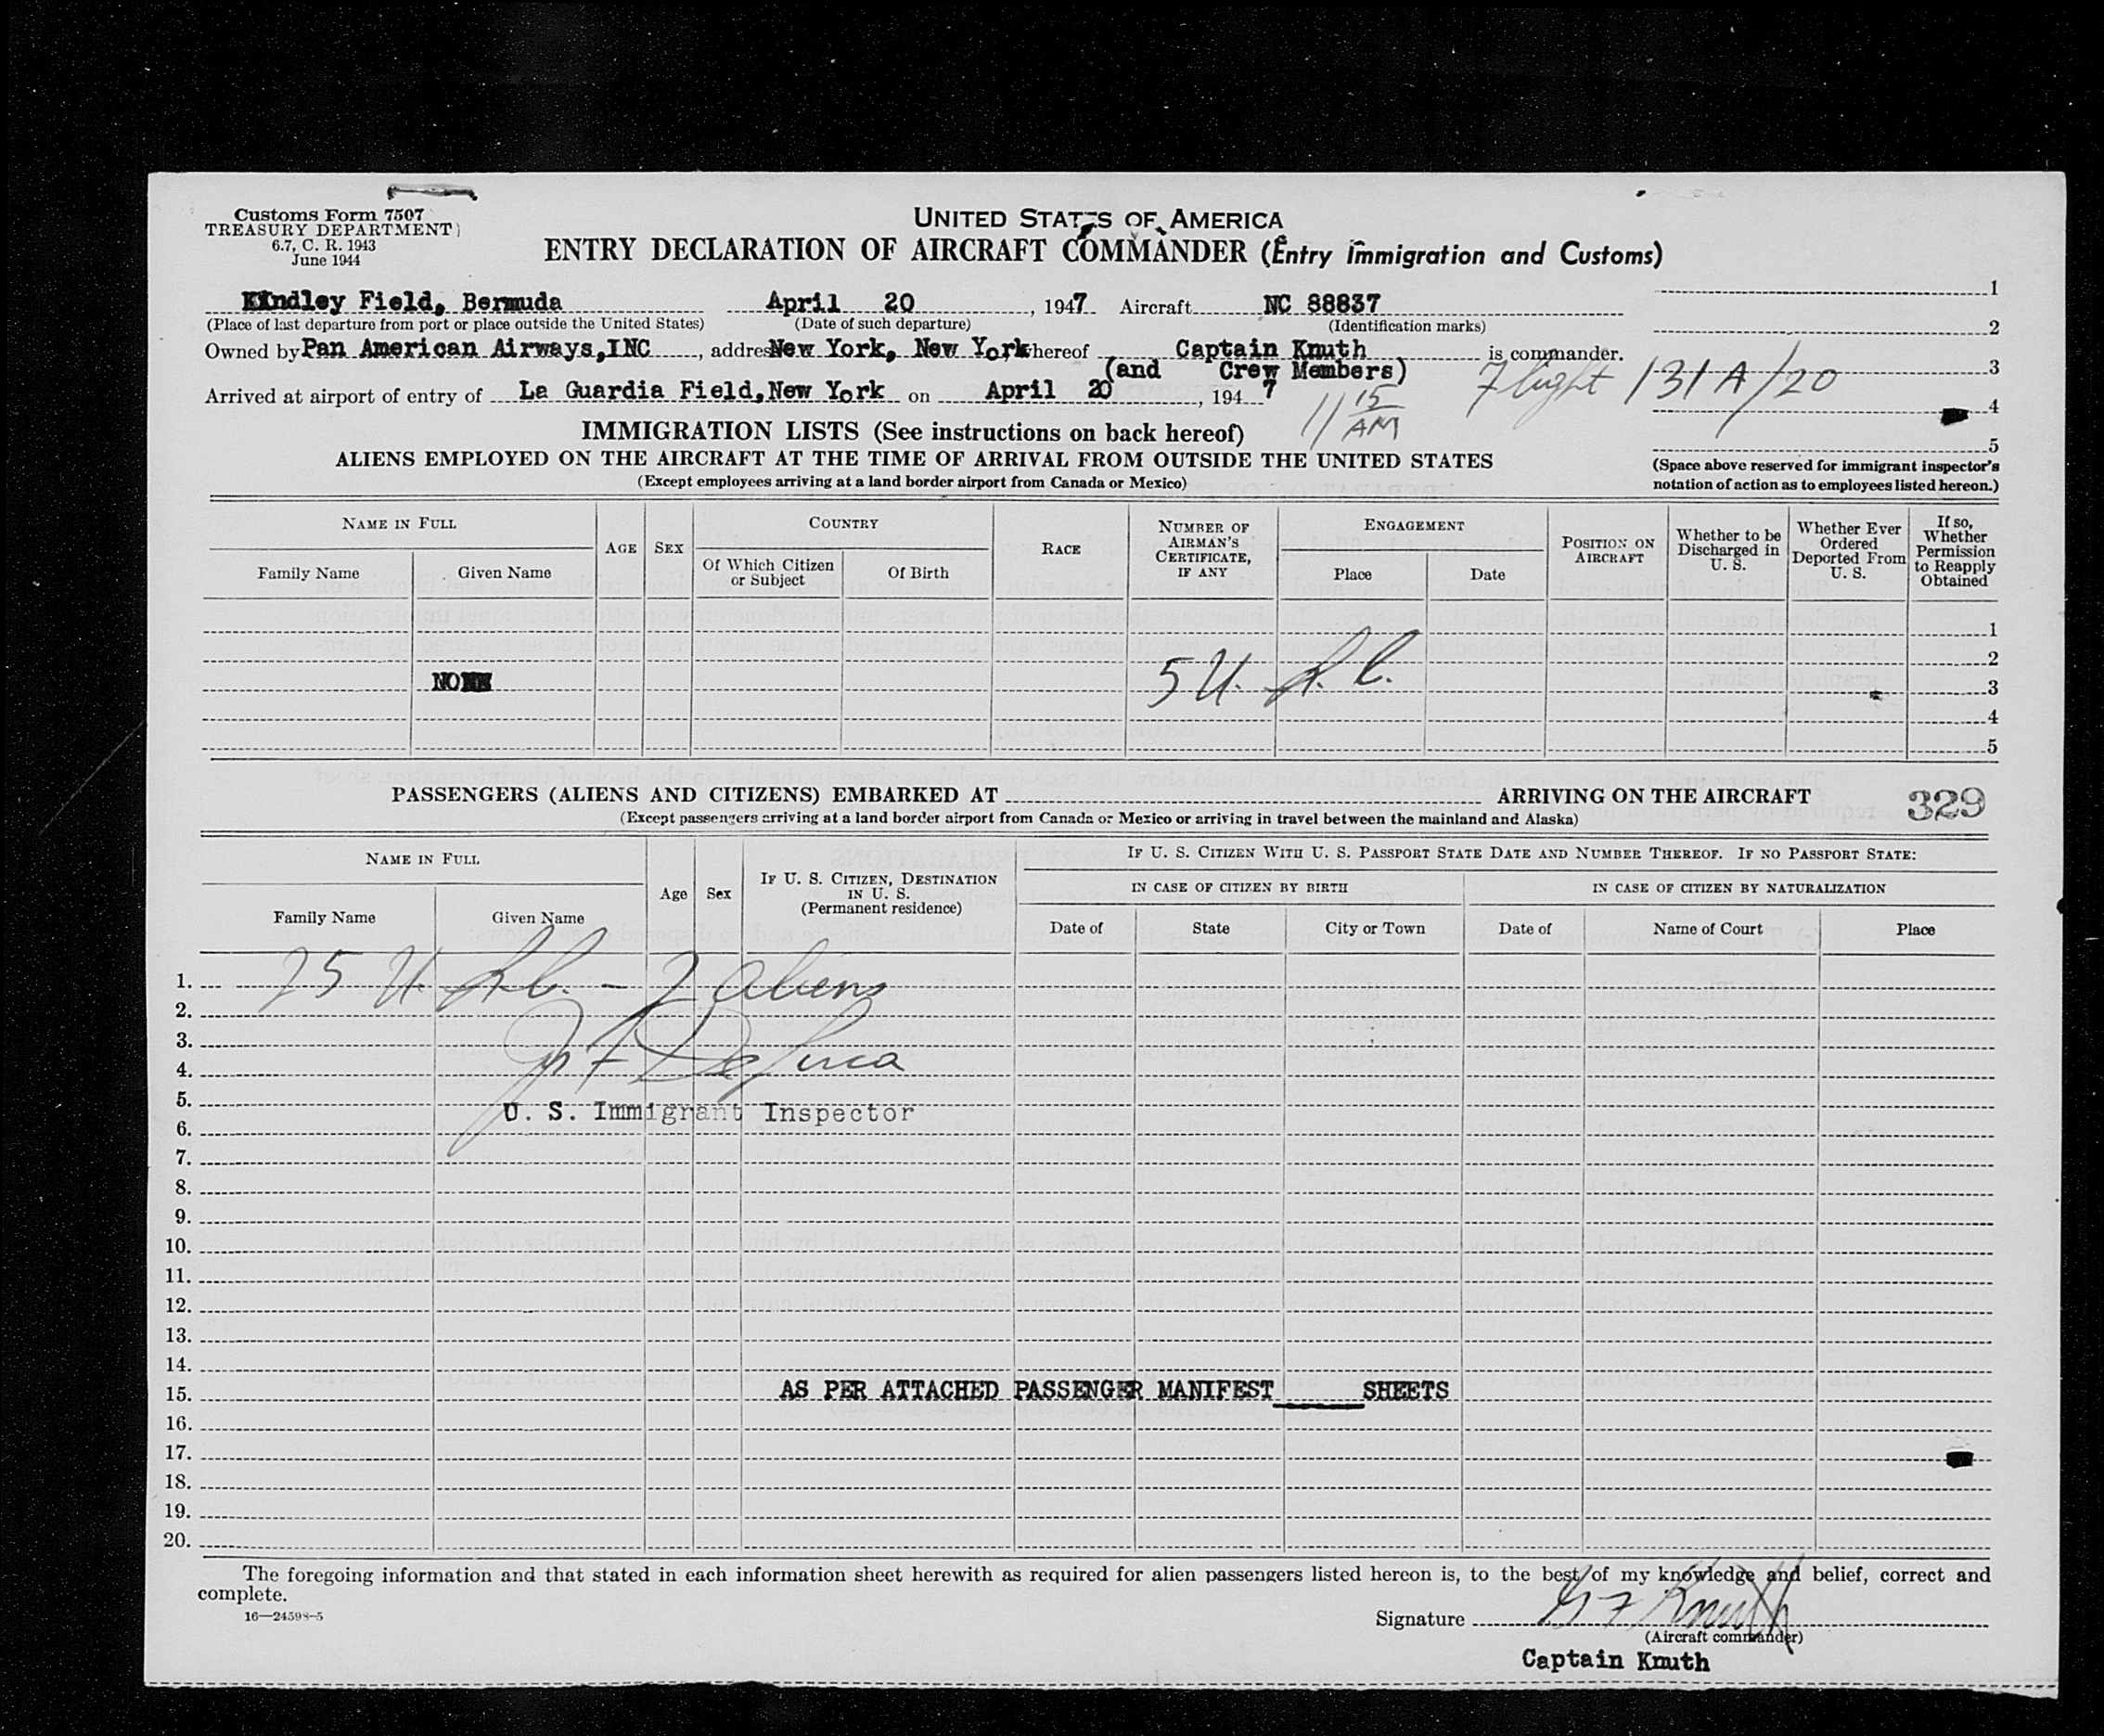 Customs Form 7507
TREASURY DEPARTMENT
6.7, C. R. 1943
June 1944
UNITED STATES OF AMERICA
ENTRY DECLARATION OF AIRCRAFT COMMANDER (Entry Immigration and Customs)
Kindley Field, Bermuda April 20, 1947 Aircraft NC 88837
(Place of last departure from port or place outside the United States) (Date of such departure) (Identification marks)
Owned by Pan American Airways, INC, address New York, New York whereof Captain Knuth is commander.
(and Crew Members)
Arrived at airport of entry of La Guardia Field, New York on April 20, 1947
11 15 AM
Flight 131A/20
1
2
3
4
5
(Space above reserved for immigrant inspector's
notation of action as to employees listed hereon.)
IMMIGRATION LISTS (See instructions on back hereof)
ALIENS EMPLOYED ON THE AIRCRAFT AT THE TIME OF ARRIVAL FROM OUTSIDE THE UNITED STATES
(Except employees arriving at a land border airport from Canada or Mexico)
NAME IN FULL
Family Name Given Name
AGE SEX
COUNTRY
Of Which Citizen or Subject Of Birth
RACE
NUMBER OF AIRMAN'S CERTIFICATE, IF ANY
ENGAGEMENT
Place Date
POSITION ON AIRCRAFT
Whether to be Discharged in U. S.
Whether Ever Ordered Deported From U. S.
If so, Whether Permission to Reapply Obtained
1
2
NONE 5 U. S. C. 3
4
5
PASSENGERS (ALIENS AND CITIZENS) EMBARKED AT ARRIVING ON THE AIRCRAFT 329
(Except passengers arriving at a land border airport from Canada or Mexico or arriving in travel between the mainland and Alaska)
NAME IN FULL
Family Name Given Name
Age Sex
IF U. S. CITIZEN, DESTINATION IN U. S.
(Permanent residence)
IF U. S. CITIZEN WITH U. S. PASSPORT STATE DATE AND NUMBER THEREOF. IF NO PASSPORT STATE:
IN CASE OF CITIZEN BY BIRTH IN CASE OF CITIZEN BY NATURALIZATION
Date of State City or Town Date of Name of Court Place
1. 25 U. S. C. - 2 aliens
2.
3.
4.
5. U. S. Immigrant Inspector
6.
7.
8.
9.
10.
11.
12.
13.
14.
15. AS PER ATTACHED PASSENGER MANIFEST SHEETS
16.
17.
18.
19.
20.
The foregoing information and that stated in each information sheet herewith as required for alien passengers listed hereon is, to the best of my knowledge and belief, correct and
complete.
16—24598-5
Signature Knuth
(Aircraft commander)
Captain Knuth